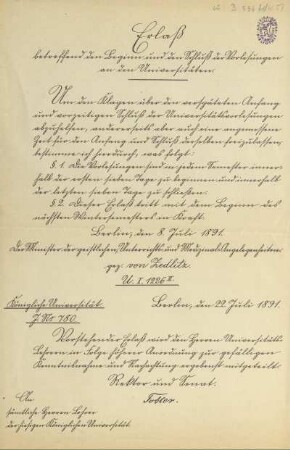 Erlaß
betreffend den Beginn und den Schluß der Vorlesungen
an den Universitäten.
Um den Klagen über den verspäteten Anfang
und vorzeitigen Schluß der Universitätsvorlesungen
abzuhelfen, andererseits aber auch eine angemessene
Zeit für den Anfang und Schluß derselben freizulassen,
bestimme ich hierdurch, was folgt:
§ 1. Die Vorlesungen sind in jedem Semester inner-
halb der ersten sieben Tage zu beginnen und innerhalb
der letzten sieben Tage zu schließen.
§ 2. Dieser Erlaß tritt mit dem Beginn des
nächsten Wintersemesters in Kraft.
Berlin, den 8. Juli 1891.
Der Minister der geistlichen, Unterrichts- und Medizinal-Angelegenheiten
gez. von Zedlitz.
U. I. 1226 II
Königliche Universität
J. № 780.
Berlin, den 22 Juli 1891.
Vorstehender Erlaß wird den Herren Universitäts-
Lehrern in Folge höherer Anordnung zur gefälligen
Kenntnißnahme und Nachachtung ergebenst mitgetheilt.
Rektor und Senat.
An
sämtliche Herren Lehrer
der hiesigen Königlichen Universität.